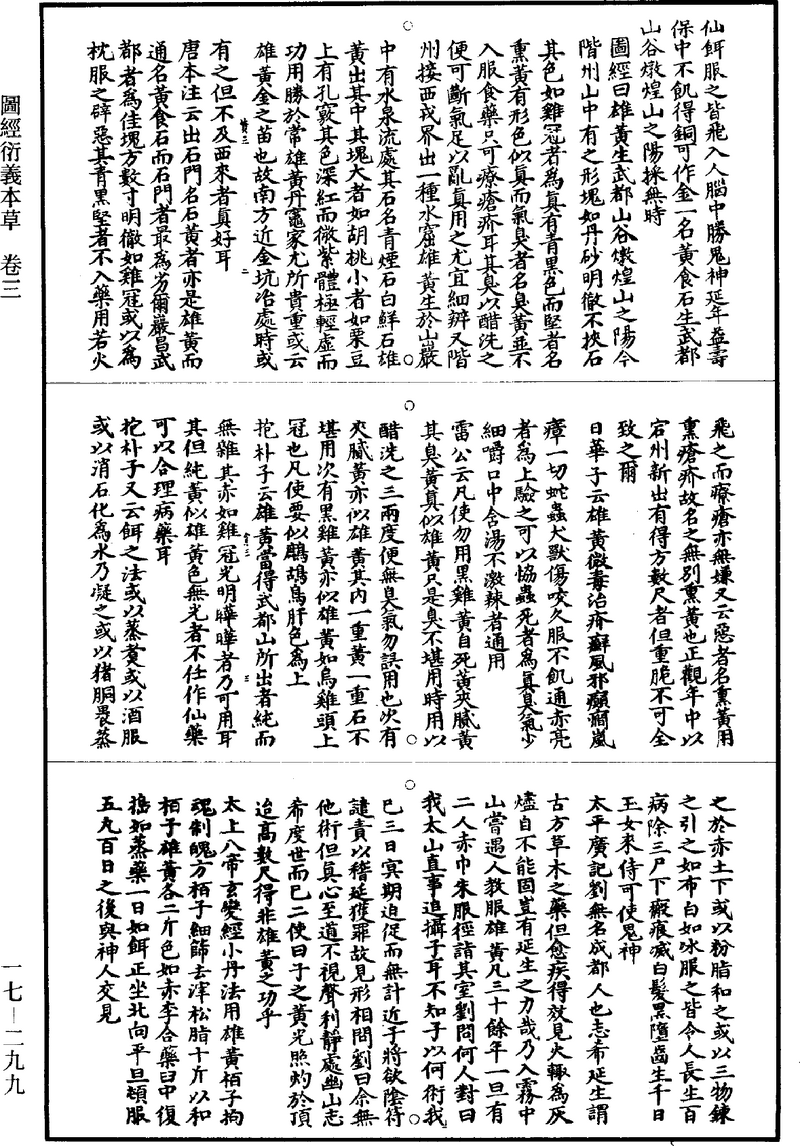 仙餌服之皆飛入人腦中勝鬼神延年益壽
保中不飢得銅可作金一名黃食石生武都
山谷燉煌山之陽採無時
圖經曰雄黃生武都山谷燉煌山之陽今
階州山中有之形塊如丹砂明徹不挾石
其色如雞冠者為真有青黑色而堅者名
熏黃有形色似真而氣臭者名臭黃並不
入服食藥只可療瘡疥耳其臭以醋洗之
便可斷氣足以亂真用之尤宜細辨又階
州接西戎界出一種水窟雄黃生於山巖
中有水泉流處其石名青煙石白鮮石雄
黃出其中其塊大者如胡桃小者如粟豆
上有孔竅其色深紅而微紫體極輕虛而
功用勝於常雄黃丹竈家尤所貴重或云
雄黃金之苗也故南方近金坑冶處時或
有之但不及西來者真好耳
唐本注云出石門名石黃者亦是雄黃而
通名黃食石而石門者最為劣爾巖昌武
都者為佳塊方數寸明徹如雞冠或以為
枕服之辟惡其青黑堅者不入藥用若火
飛之而療瘡亦無嫌又云惡者名熏黃用
熏瘡疥故名之無別熏黃也正觀年中以
宕州新出有得方數尺者但重脆不可全
致之爾
日華子云雄黃微毒治疥癬風邪癲癇嵐
瘴一切蛇蟲犬獸傷咬久服不飢通赤亮
者為上驗之可以㷊蟲死者為真臭氣少
細嚼口中含湯不激辣者通用
雷公云凡使勿用黑雞黃自死黃夾膩黃
其臭黃真似雄黃只是臭不堪用時用以
醋洗之三兩度便無臭氣勿誤用也次有
夾膩黃亦似雄黃其內一重黃一重石不
堪用次有黑雞黃亦似雄黃如烏雞頭上
冠也凡使要似鷓鴣鳥肝色為上
抱朴子云雄黃當得武都山所出者純而
無雜其赤如雞冠光明曄曄者乃可用耳
其但純黃似雄黃色無光者不任作仙藥
可以合理病藥耳
抱朴子又云餌之法或以蒸煑或以酒服
或以消石化為水乃凝之或以猪胴畏蒸
之於赤土下或以松脂和之或以三物鍊
之引之如布白如冰服之皆令人長生百
病除三尸下瘢痕滅白髮黑墮齒生千日
玉女來侍可使鬼神
太平廣記劉無名成都人也志希延生謂
古方草木之藥但愈疾得效見火輒為灰
燼自不能固豈有延生之力哉乃入霧中
山嘗遇人教服雄黃凡三十餘年一旦有
二人赤巾朱服徑詣其室劉問何人對曰
我太山直事追攝子耳不知子以何術我
已三日冥期迫促而無計近子將欲陰符
譴責以稽延獲罪故見形相問劉曰余無
他術但真心至道不視聲利靜處幽山志
希度世而已二使曰子之黃光照灼於頂
迨高數尺得非雄黃之功乎
太上八帝玄變經小丹法用雄黃栢子拘
魂制魄方栢子細篩去滓松脂十斤以和
栢子雄黃各二斤色如赤李合藥臼中復
擣如蒸藥一日如餌正坐北向平旦頓服
五丸百日之後與神人交見
圖經衍義本草　卷三
一七—二九九